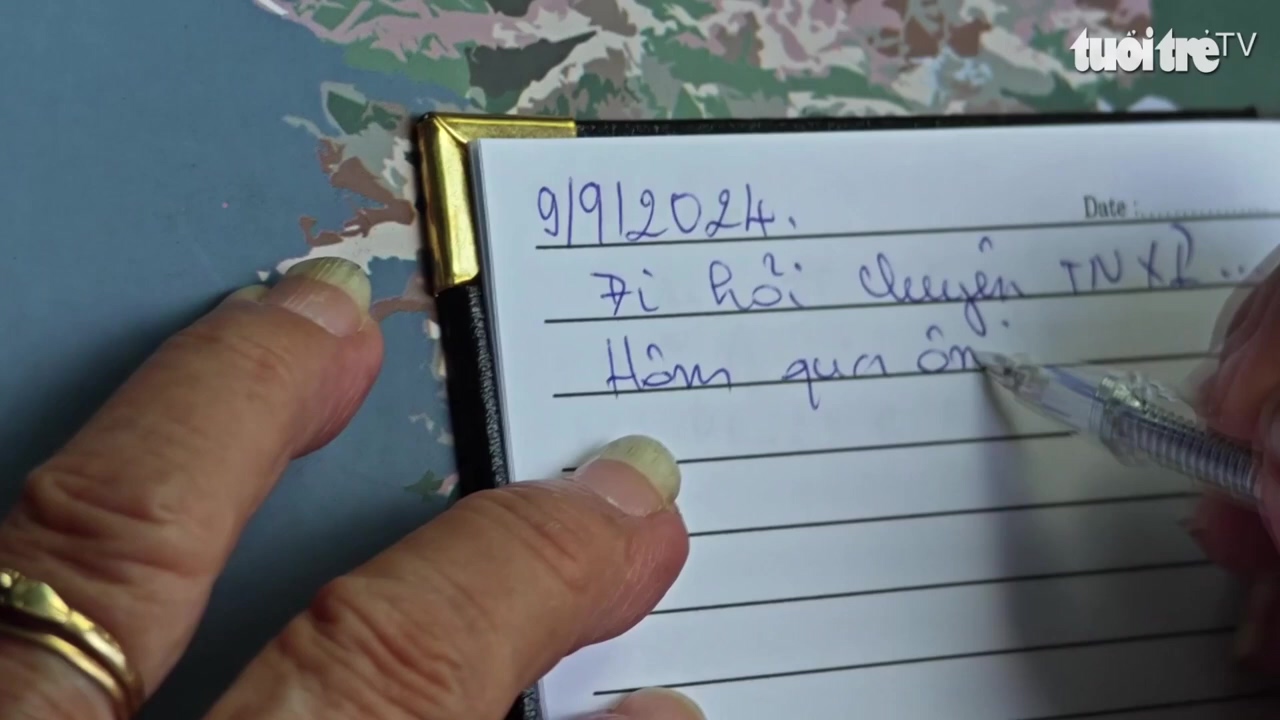 tuổi trẻ TV
9/9/2024.
Date :
Đi hỏi chuyện TNXP...
Hôm qua ôn